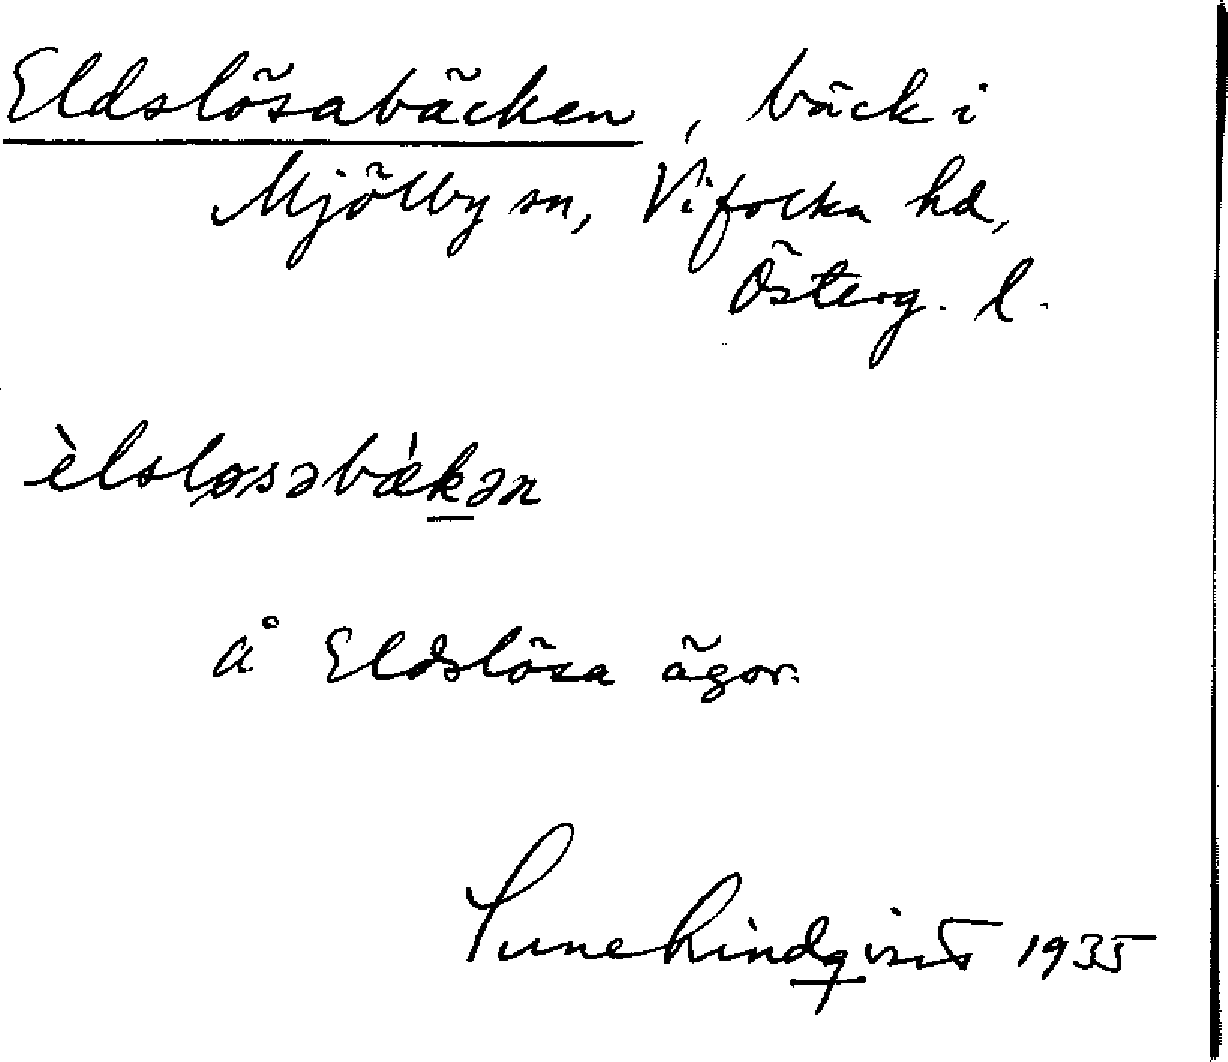 Eldslösabäcken, bäck i
Mjölby sn, Vifolka hd,
Österg. l.
èlsløsəbæ̀kən
å Eldslösa ägor.
Sune Lindqvist 1935